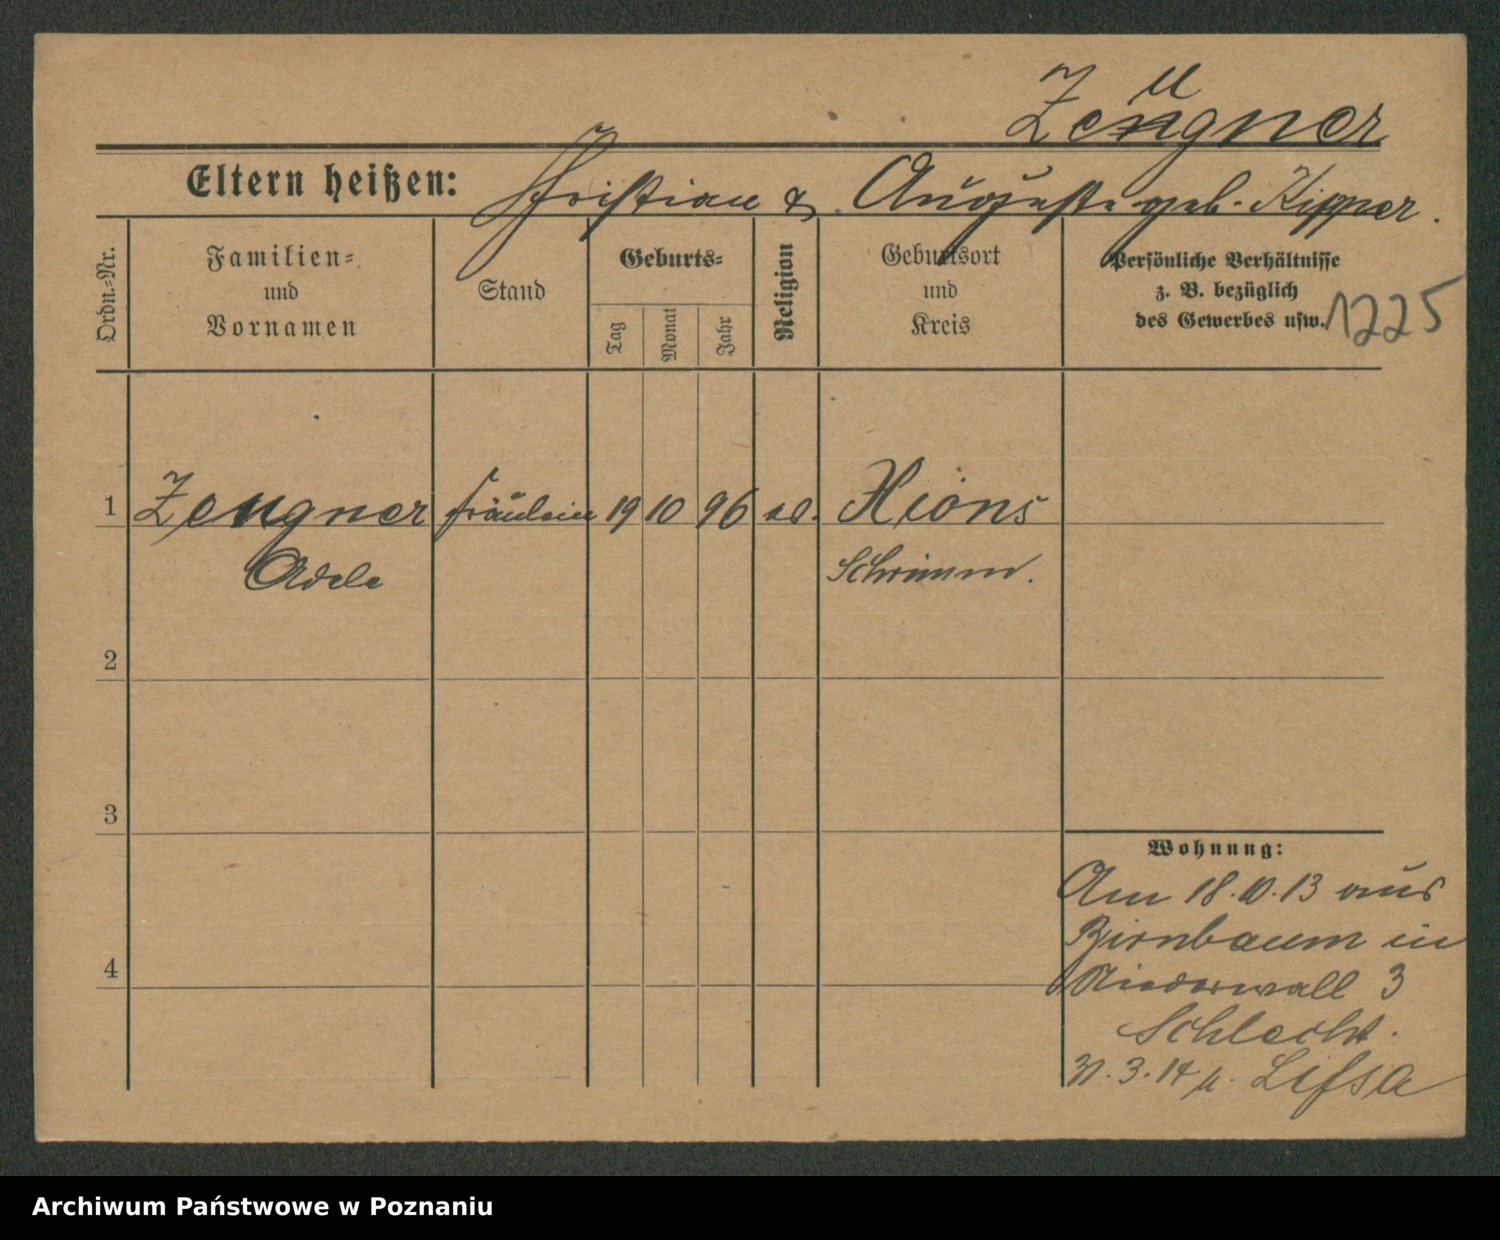 Zeugner
Eltern heißen: Christian & Auguste geb. Kippner.
Ordn.-Nr.
Familien-
und
Vornamen
Stand
Geburts-
Tag
Monat
Jahr
Religion
Geburtsort
und
Kreis
Persönliche Verhältnisse
z. B. bezüglich
des Gewerbes usw.
1225
1 Zeugner Fräulein 19 10 96 Xions
Adele Schrimm.
2
3
Wohnung:
Am 18.10.13 aus
Birnbaum in
Niederwall 3
4
Schlecht.
31.3.14 n. Lissa
Archiwum Państwowe w Poznaniu